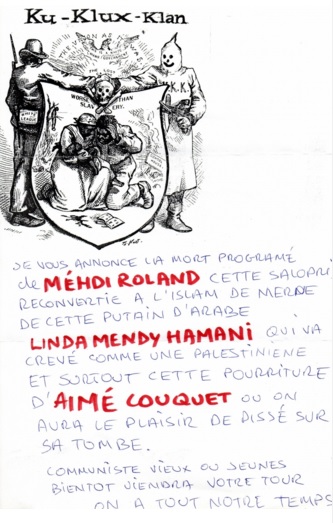 Ku-Klux-Klan
WHITE LEAGUE
K.K.
WORSE THAN
SLAVERY.
JE VOUS ANNONCE LA MORT PROGRAMÉ
de MÉHDI ROLAND CETTE SALOPRI
RECONVERTIE A L'ISLAM DE MERDE
DE CETTE PUTAIN D'ARABE
LINDA MENDY HAMANI QUI VA
CREVÉ COMME UNE PALESTINIENE
ET SURTOUT CETTE POURRITURE
D'AIMÉ COUQUET OU ON
AURA LE PLAISIR DE PISSÉ SUR
SA TOMBE.
COMMUNISTE VIEUX OU JEUNES
BIENTOT VIENDRA VOTRE TOUR
ON A TOUT NOTRE TEMPS